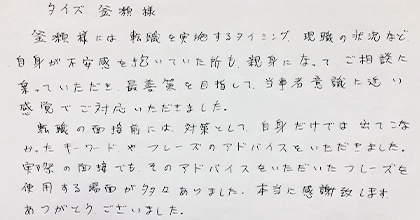 タイズ 釜瀬様
釜瀬様には、転職を実施するタイミング、現職の状況など
自身が不安感を抱いていた所も、親身になって ご相談に
乗っていただき、最善策を目指して、当事者意識に近い
感覚でご対応いただきました。
転職の面接前には、対策として、自身だけでは出てこな
かったキーワードやフレーズのアドバイスをいただきました。
実際の面接でも、そのアドバイスをいただいたフレーズを
使用する場面が多々ありました。本当に感謝致します。
ありがとうございました。